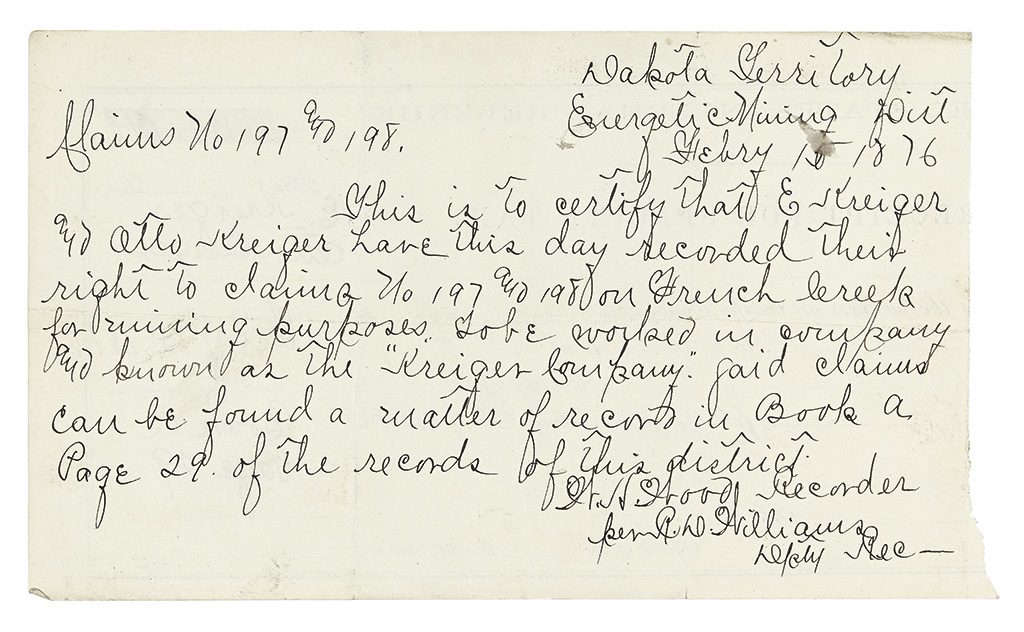 Dakota Territory
Energetic Mining Dist
Claims No 197 and 198.
Febry 15 1876
This is to certify that E Kreiger
and Otto Kreiger have this day recorded their
right to claims No 197 and 198 on French Creek
for mining purposes. To be worked in company
and known as the "Kreiger Company." Said claims
can be found a matter of record in Book A
Page 29. of the records of this district.
W. H. Wood Recorder
per R. D. Williams
Dpty Rec —